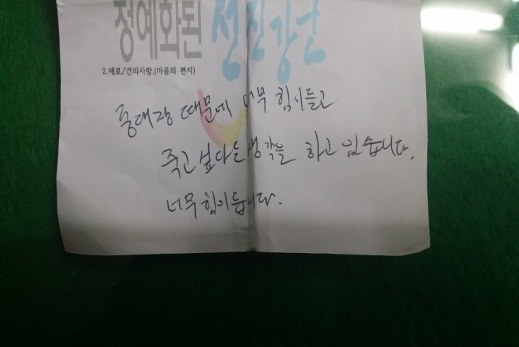 정예화된 선진강군
2.애로/건의사항,(마음의 편지)
중대장 때문에 너무 힘이들고
죽고 싶다는 생각을 하고 있습니다.
너무 힘이듭니다.